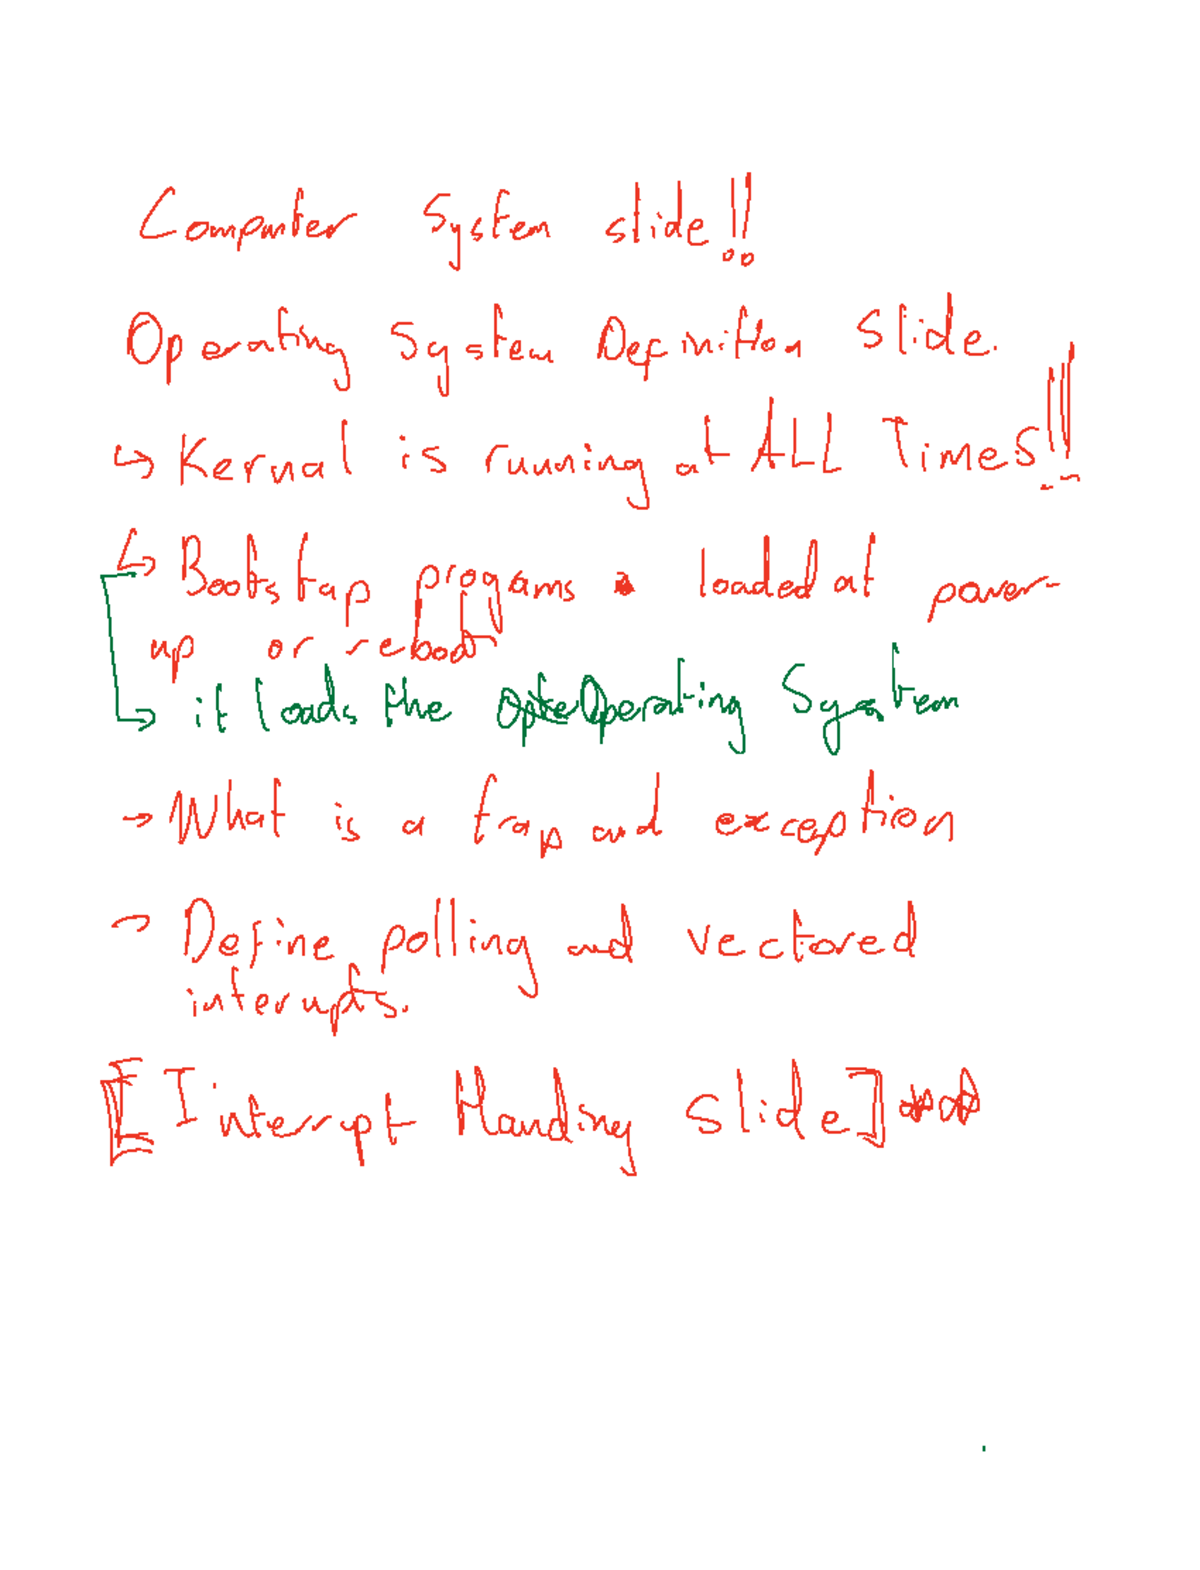 Computer System slide!!
Operating System Definition Slide.
↳ Kernal is running at ALL Times!!!
↳ Bootstrap progams loaded at power-
up or reboot
↳ it loads the Operating System
→ What is a trap and exception
→ Define polling and vectored
interupts.
[Interrupt Handing Slide]**